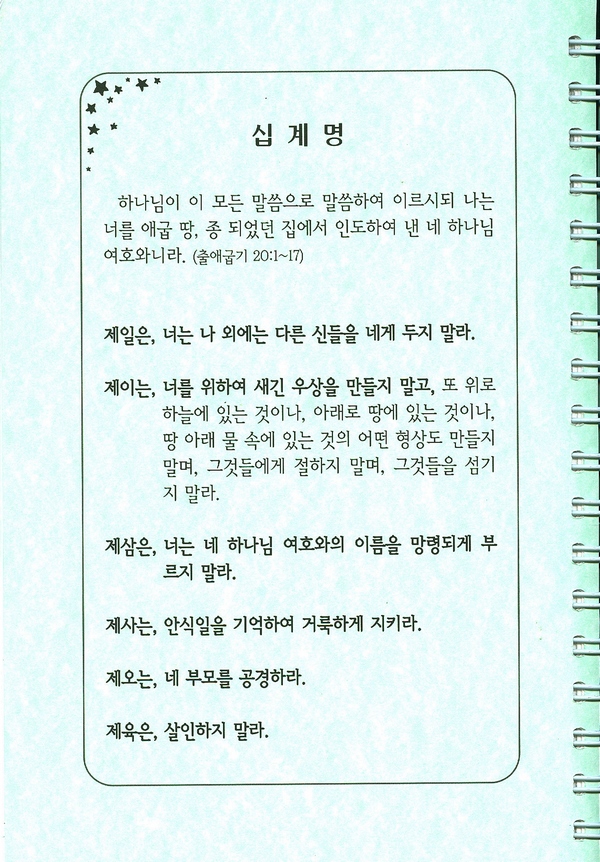 십 계 명
하나님이 이 모든 말씀으로 말씀하여 이르시되 나는
너를 애굽 땅, 종 되었던 집에서 인도하여 낸 네 하나님
여호와니라. (출애굽기 20:1~17)
제일은, 너는 나 외에는 다른 신들을 네게 두지 말라.
제이는, 너를 위하여 새긴 우상을 만들지 말고, 또 위로
하늘에 있는 것이나, 아래로 땅에 있는 것이나,
땅 아래 물 속에 있는 것의 어떤 형상도 만들지
말며, 그것들에게 절하지 말며, 그것들을 섬기
지 말라.
제삼은, 너는 네 하나님 여호와의 이름을 망령되게 부
르지 말라.
제사는, 안식일을 기억하여 거룩하게 지키라.
제오는, 네 부모를 공경하라.
제육은, 살인하지 말라.